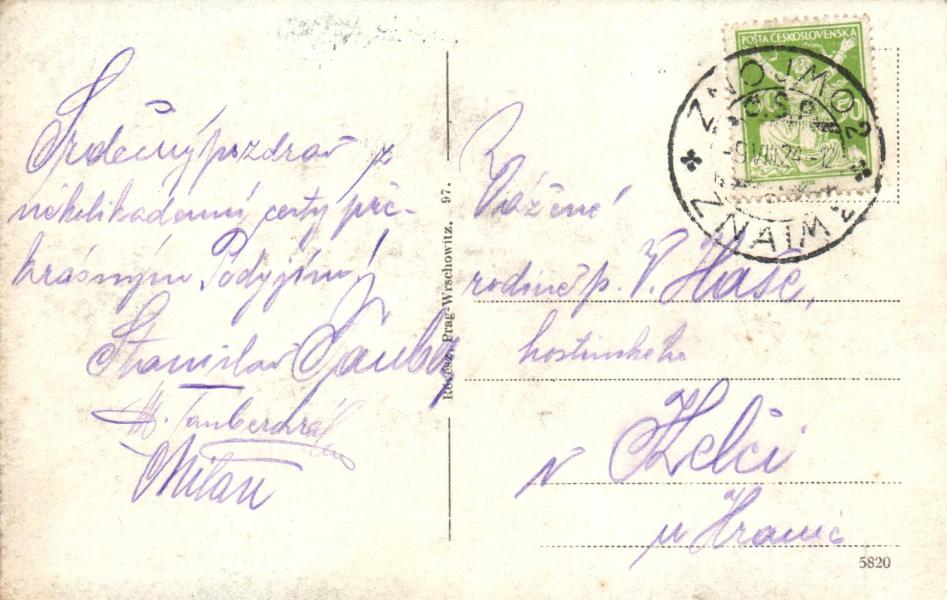 Srdečný pozdrav z
několikadenní cesty pře-
krásným Podyjím!
Stanislav Tauber
Milan
Prag-Wrschowitz. 97.
POŠTA ČESKOSLOVENSKÁ
ZNOJMO 2
Č.S.P.
ZNAIM 2
Vážené
rodině p. V. Hašc,
hostinského
v Kelči
u Hranic
5820